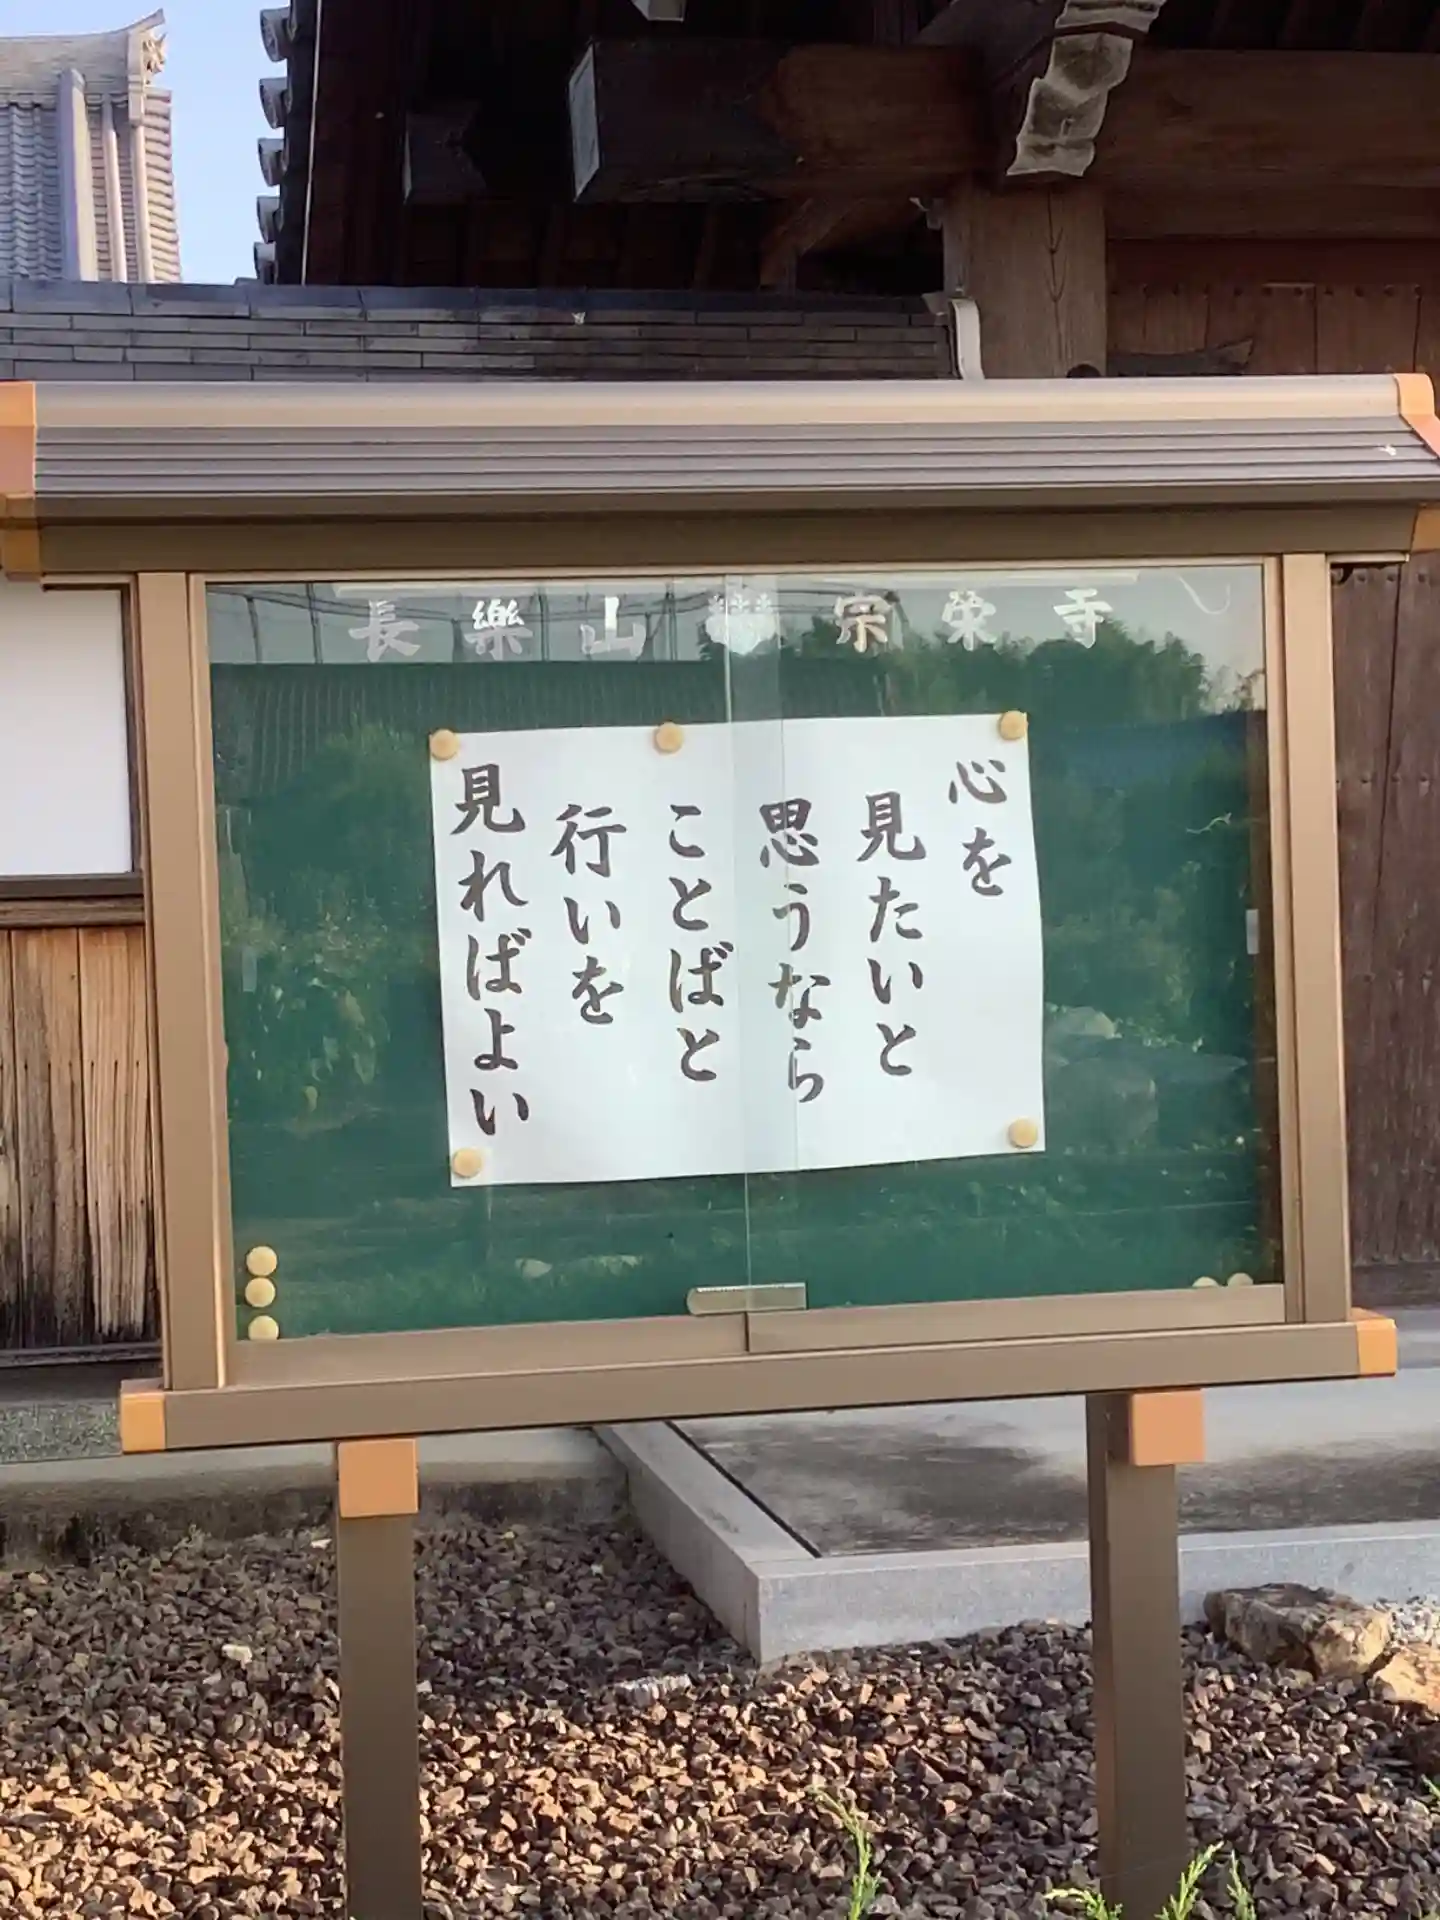 長樂山 宗栄寺
心を
見たいと
思うなら
ことばと
行いを
見ればよい